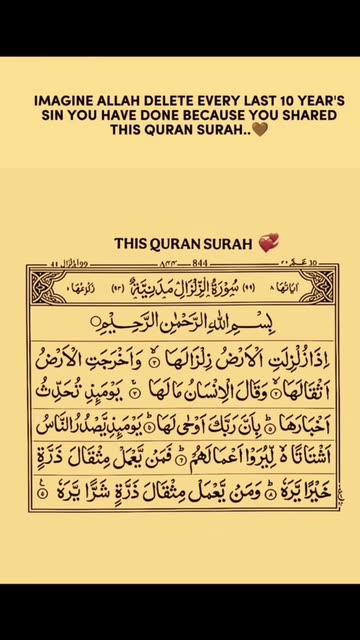 IMAGINE ALLAH DELETE EVERY LAST 10 YEAR'S
SIN YOU HAVE DONE BECAUSE YOU SHARED
THIS QURAN SURAH..🤎
THIS QURAN SURAH 💞
الزلزال ٩٩ ٨٤٤ 844 عم ٣٠
اٰیَاتُهَا ٨ (٩٩) سُوْرَةُ الزِّلْزَالِ مَدَنِیَّةٌ (٩٣) رُكُوْعُهَا ١
بِسْمِ اللّٰهِ الرَّحْمٰنِ الرَّحِیْمِ
اِذَا زُلْزِلَتِ الْاَرْضُ زِلْزَالَهَا ۙ١ وَاَخْرَجَتِ الْاَرْضُ
اَثْقَالَهَا ۙ٢ وَقَالَ الْاِنْسَانُ مَا لَهَا ۚ٣ یَوْمَىِٕذٍ تُحَدِّثُ
اَخْبَارَهَا ۙ٤ بِاَنَّ رَبَّكَ اَوْحٰی لَهَا ؕ٥ یَوْمَىِٕذٍ یَّصْدُرُ النَّاسُ
اَشْتَاتًا ۙ۬ لِّیُرَوْا اَعْمَالَهُمْ ؕ٦ فَمَنْ یَّعْمَلْ مِثْقَالَ ذَرَّةٍ
خَیْرًا یَّرَهٗ ؕ٧ وَمَنْ یَّعْمَلْ مِثْقَالَ ذَرَّةٍ شَرًّا یَّرَهٗ ۠٨